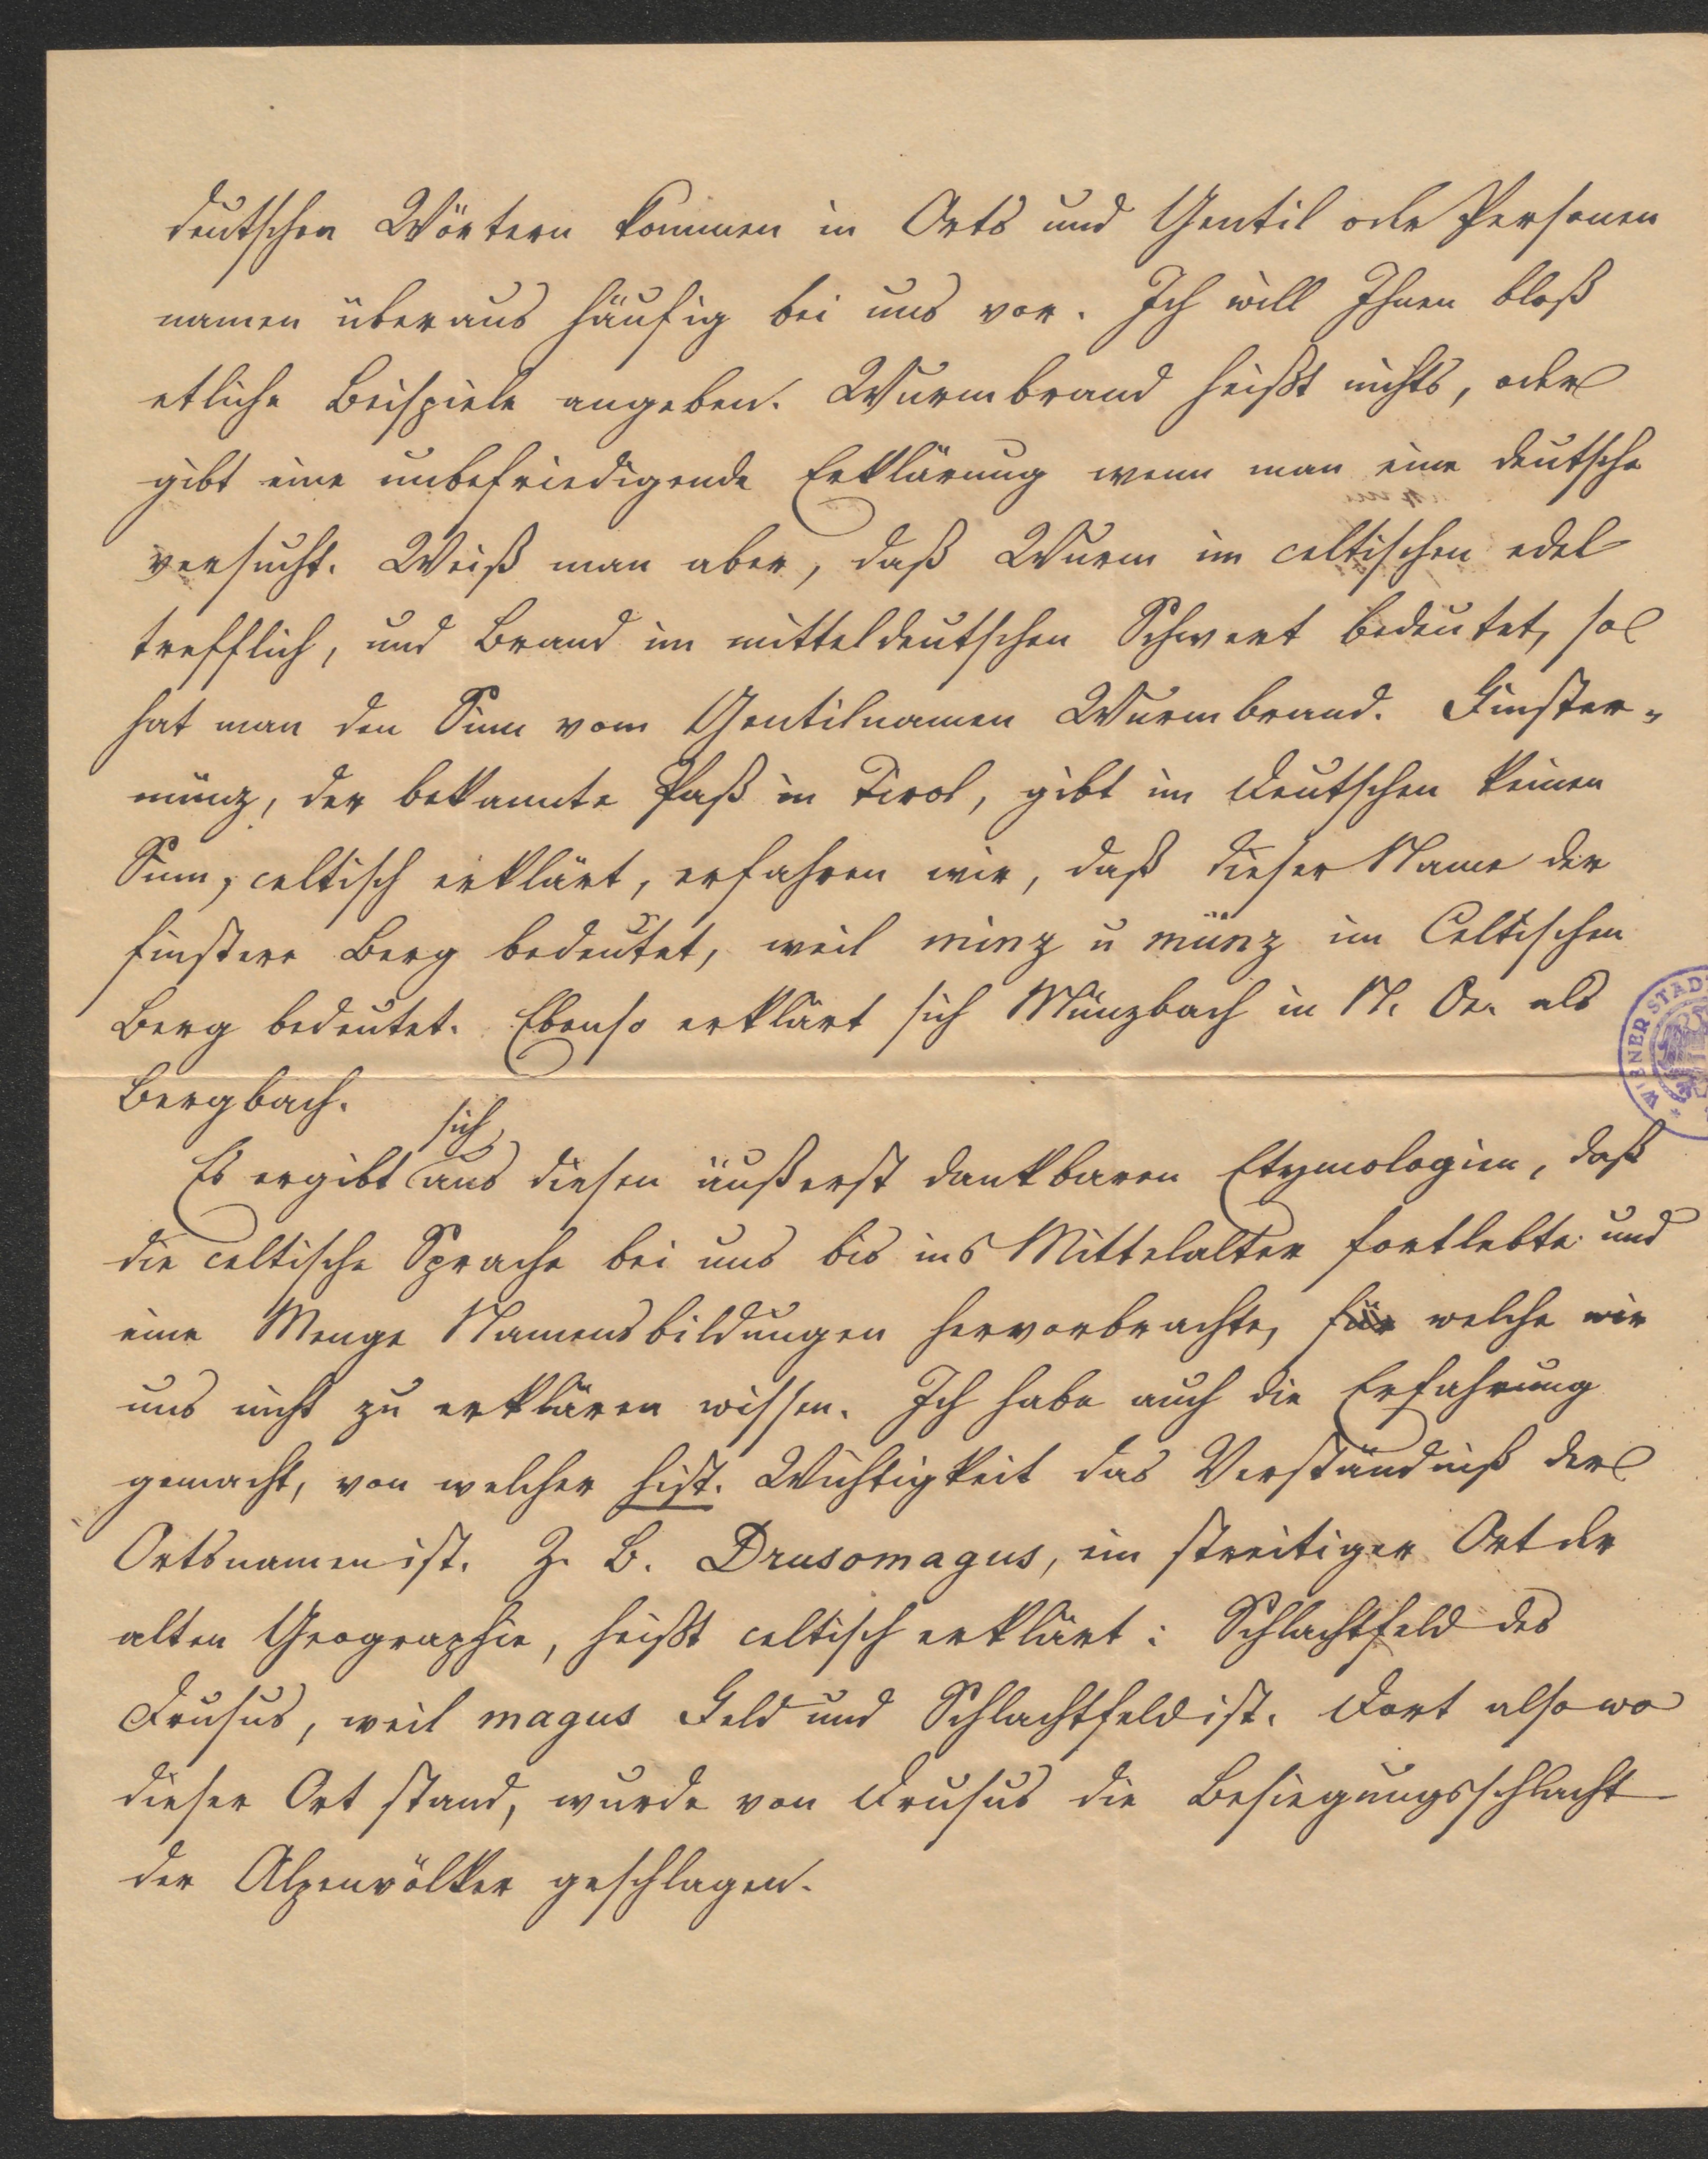 deutschen Wörtern kommen in Orts und Gentil oder Personen
namen überaus häufig bei uns vor. Ich will Ihnen bloß
etliche Beispiele angeben. Wurmbrand heißt nichts, oder
gibt eine unbefriedigende Erklärung wenn man eine deutsche
versucht. Weiß man aber, daß Wurm im celtischen edel
trefflich, und Brand im mitteldeutschen Schwert bedeutet, so
hat man den Sinn vom Gentilnamen Wurmbrand. Finster-
münz, der bekannte Paß in Tirol, gibt im Deutschen keinen
Sinn, celtisch erklärt, erfahren wir, daß dieser Name der
finstere Berg bedeutet, weil minz u münz im Celtischen
Berg bedeutet. Ebenso erklärt sich Münzbach in N. Oe. als
Bergbach.
Es ergibt sich aus diesen äußerst dankbaren Etymologien, daß
die celtische Sprache bei uns bis ins Mittelalter fortlebte und
eine Menge Namensbildungen hervorbrachte, für welche wir
uns nicht zu erklären wissen. Ich habe auch die Erfahrung
gemacht, von welcher hist. Wichtigkeit das Verständniß der
Ortsnamen ist. Z. B. Drusomagus, ein streitiger Ort der
alten Geographie, heißt celtisch erklärt: Schlachtfeld des
Drusus, weil magus Feld und Schlachtfeld ist. Dort also wo
dieser Ort stand, wurde von Drusus die Besiegungsschlacht
der Alpenvölker geschlagen.
WIENER STAD